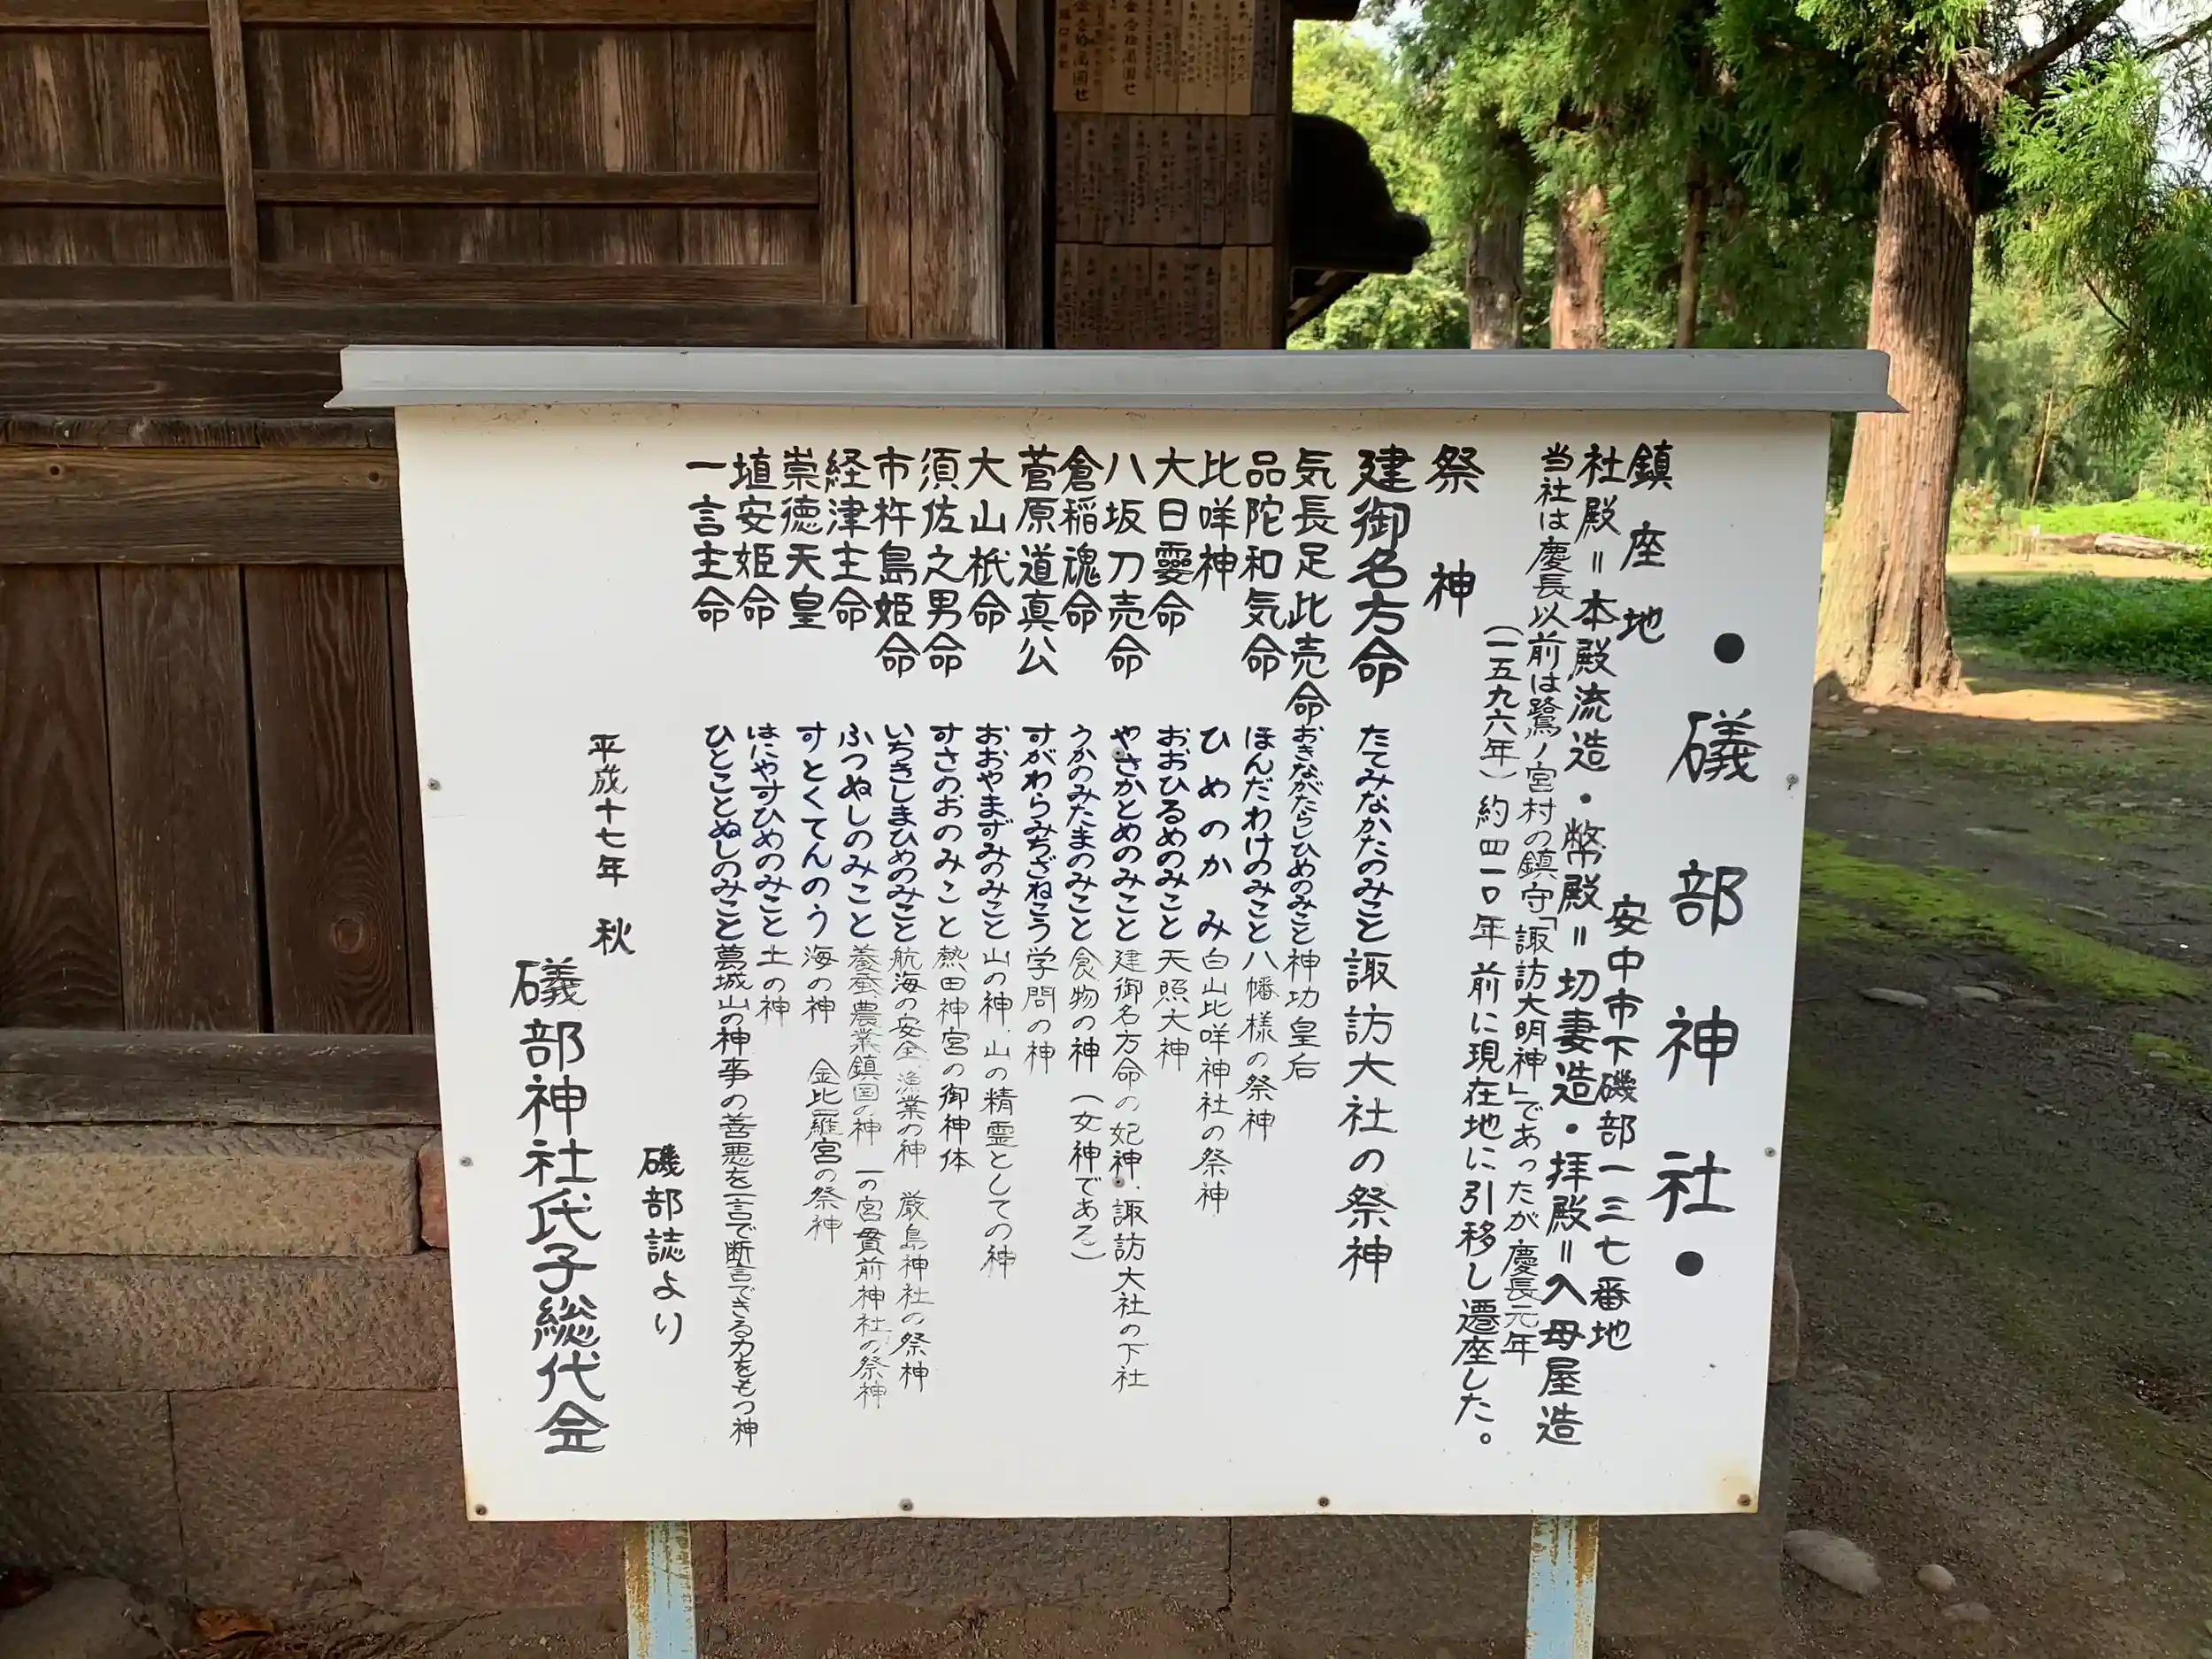 ・礒部神社・
鎮座地　安中市下磯部一三七番地
社殿＝本殿流造・幣殿＝切妻造・拝殿＝入母屋造
当社は慶長以前は鷺ノ宮村の鎮守「諏訪大明神」であったが慶長元年
（一五九六年）約四一〇年前に現在地に引移し遷座した。
祭神
建御名方命　たてみなかたのみこと　諏訪大社の祭神
気長足比売命　おきながたらしひめのみこと　神功皇后
品陀和気命　ほんだわけのみこと　八幡様の祭神
比咩神　ひめのかみ　白山比咩神社の祭神
大日孁命　おおひるめのみこと　天照大神
八坂刀売命　やさかとめのみこと　建御名方命の妃神．諏訪大社の下社
倉稲魂命　うかのみたまのみこと　食物の神（女神である）
菅原道真公　すがわらみちざねこう　学問の神
大山祇命　おおやまずみのみこと　山の神．山の精霊としての神
須佐之男命　すさのおのみこと　熱田神宮の御神体
市杵島姫命　いちきしまひめのみこと　航海の安全漁業の神　厳島神社の祭神
経津主命　ふつぬしのみこと　養蚕農業鎮国の神　一の宮貫前神社の祭神
崇徳天皇　すとくてんのう　海の神　金比羅宮の祭神
埴安姫命　はにやすひめのみこと　土の神
一言主命　ひとことぬしのみこと　葛城山の神事の善悪を一言で断言できる力をもつ神
磯部誌より
平成十七年　秋
礒部神社氏子総代会